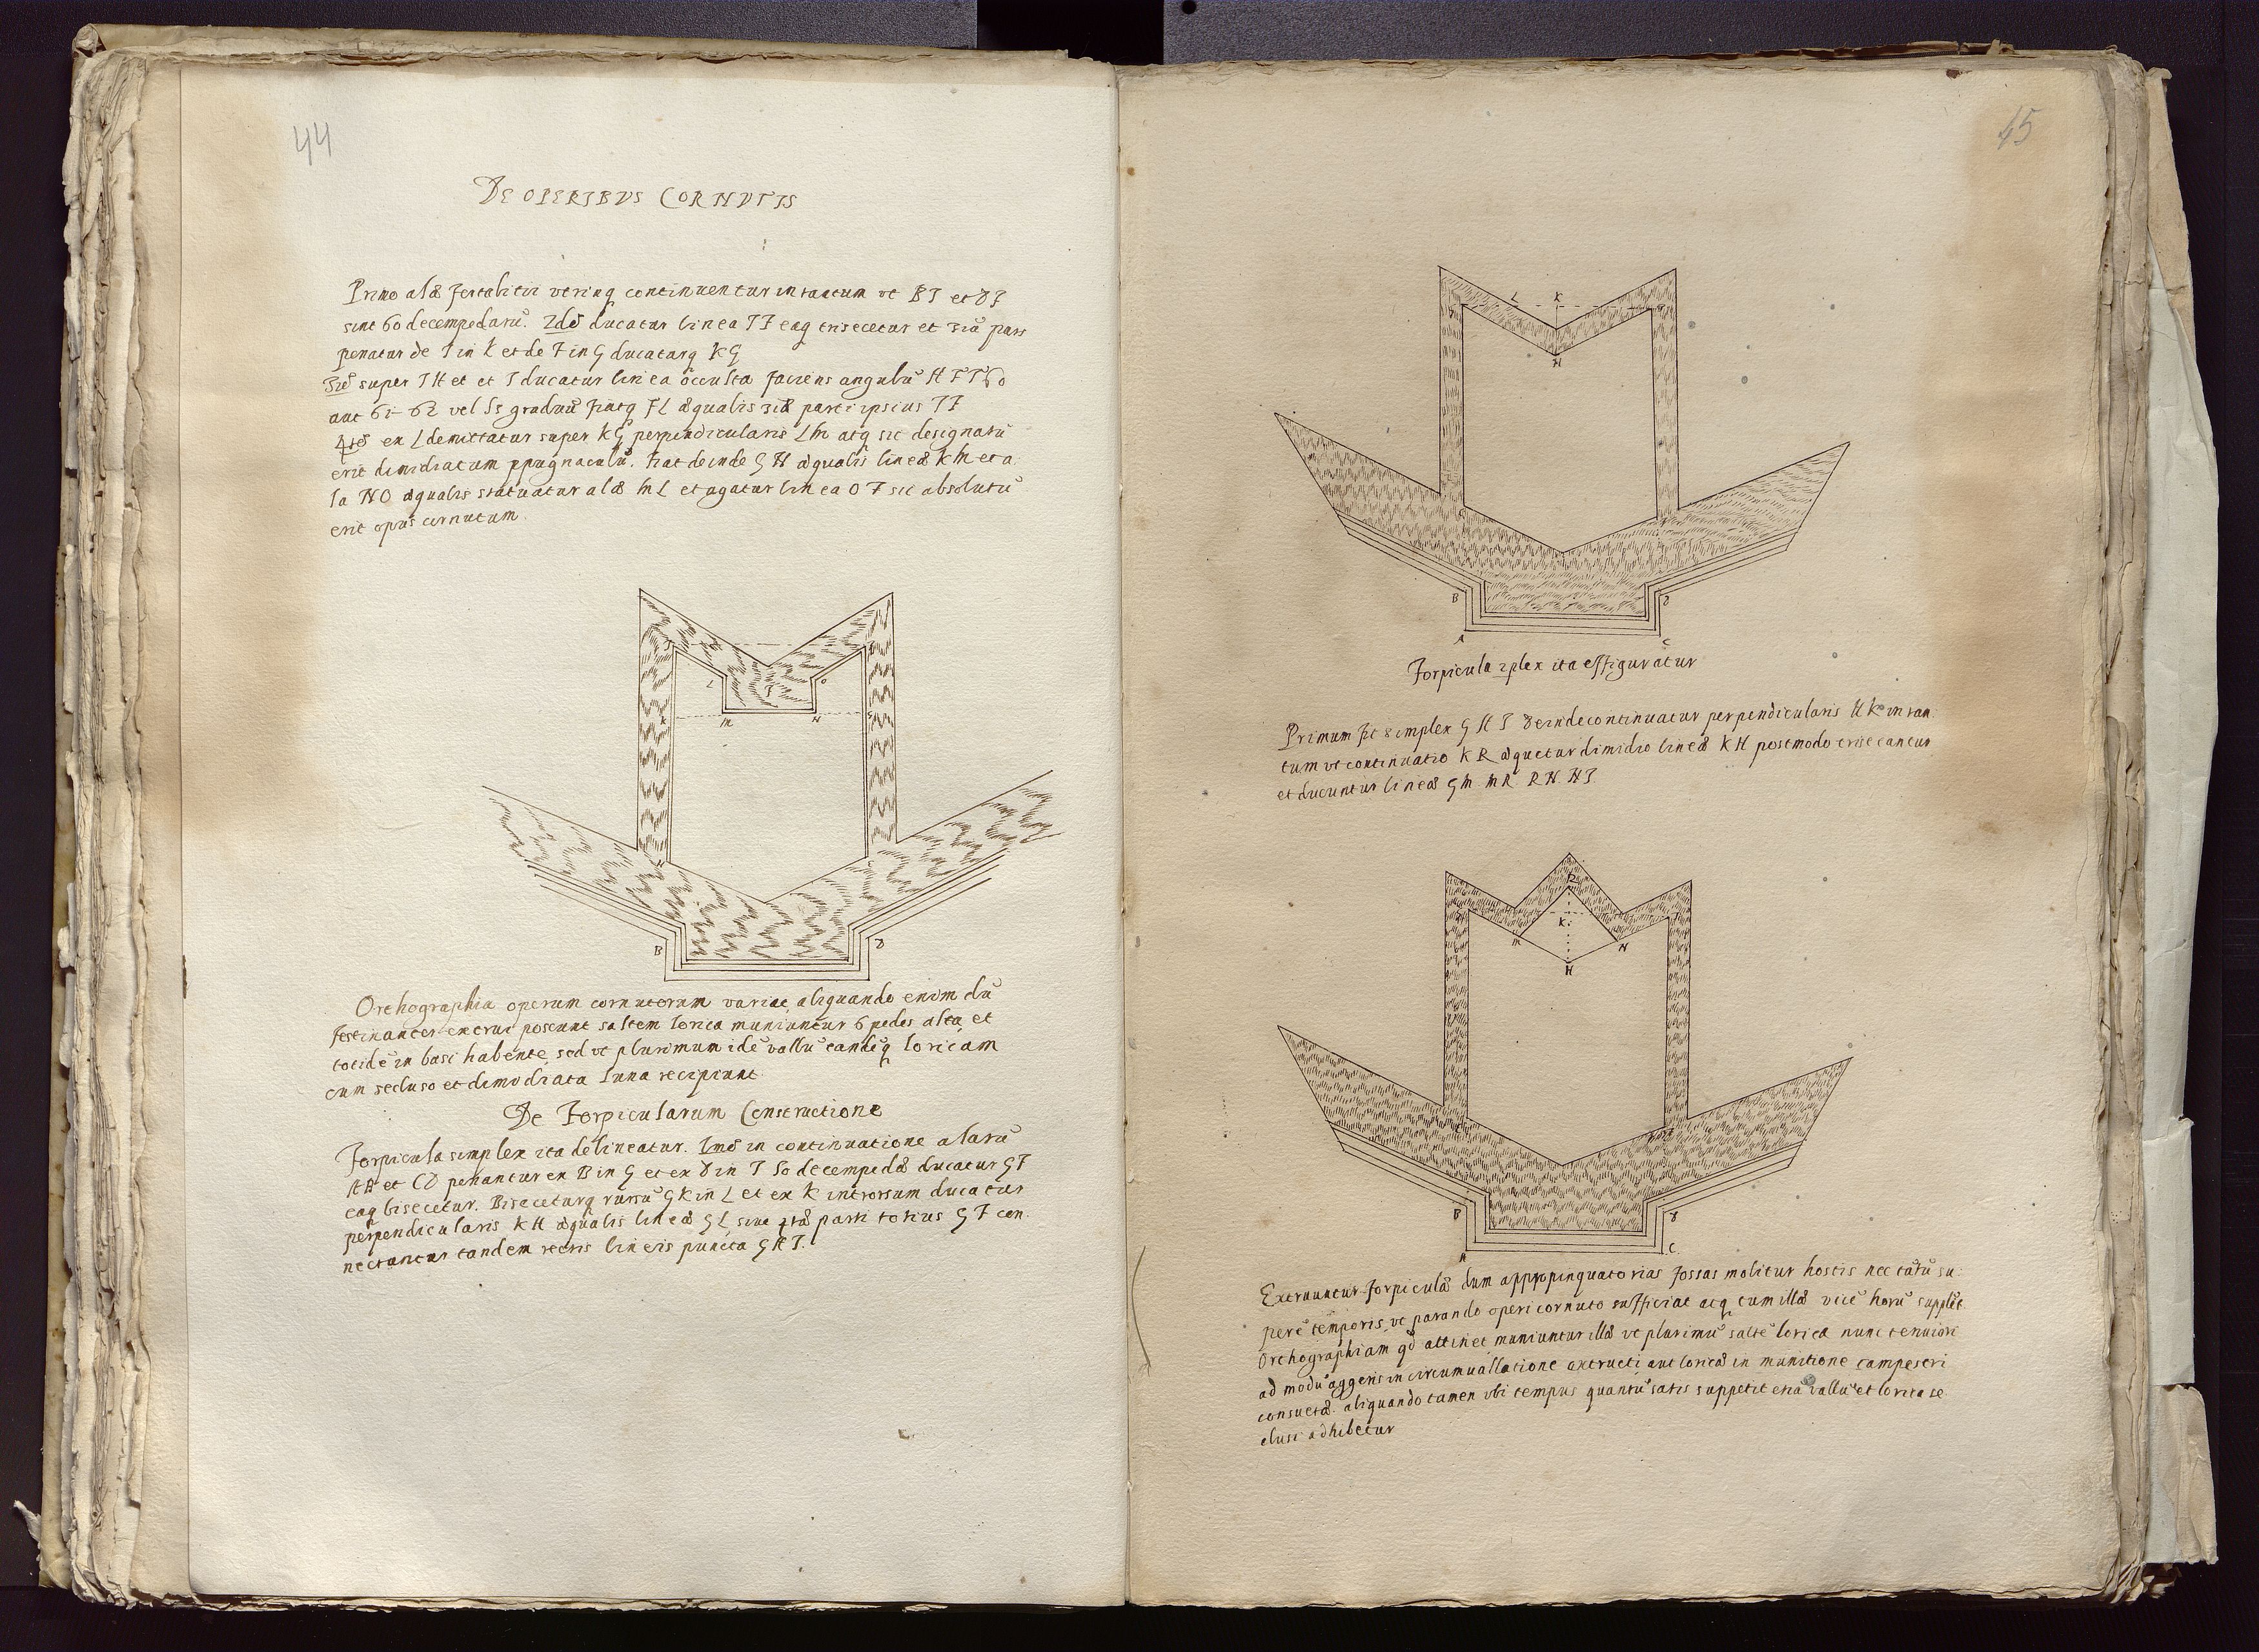 44
DE OPERIBVS CORNVTIS
Primo alæ fortalitii utrinq continuentur in tantum vt BI et DF
sint 60 decempedarū. 2dō ducatur linea IF eaq trisecetur et 3iā pars
ponatur de I in K et de F in G ducatarq KG
3iō super IH et et I ducatur linea occulta faciens angulū HFI 60
aut 61 62 vel 55 graduū fiatq FL æqualis 3iæ parti ipsius IF
4tō ex L demittatur super KG perpendicularis LM atq sic designatū
erit dimidiatum ppugnaculū. fiat deinde GN æqualis lineæ KM et a
la NO æqualis statuatur alæ ML et agatur linea OF sic absolutū
erit opus cornutum
L
O
T
K
M
N
G
B
D
Orthographia operum cornutorum variat aliquando enim dū
festinanter extrui poscunt saltem lorica muniuntur 6 pedes alta et
totidē in basi habente sed vt plurimum idē vallū eandēq loricam
cum secluso et dimidiata luna recipiunt
De Forpicularum Constructione
Forpicula simplex ita delineatur. 1mō in continuatione alarū
AB et CD ponantur ex B in G et ex D in I 50 decempedæ ducatur GI
eaq bisecetur. Bisecetürq rursū GK in L et ex K introrsum ducatur
perpendicularis KH æqualis lineæ GL siue 4tæ parti totius GI con
nectantur tandem rectis lineis puncta GHI.
45
L K
H
B D
A C
Forpicula 2plex ita effiguratur
Primum fit simplex GHI deinde continuatur perpendicularis HK in tan
tum vt continuatio KR æquetur dimidio lineæ KH postmodo trisecantur
et ducuntur lineæ GM MR RN NI
R
K
M N
H
B D
A C
Extruuntur forpiculæ dum appropinquatorias fossas molitur hostis nec tātū su
perē temporis vt parando operi cornuto sufficiat atq tum illæ vicē horū supplēt
Orthographiam qd attinet muniuntur illæ vt plurimū saltē lorica nunc tenuiori
ad modū aggeris in circumuallatione extructi aut loricæ in munitione campestri
consuetæ. aliquando tamen vbi tempus quantū satis suppetit etiā vallū et lorica se
clusi adhibetur